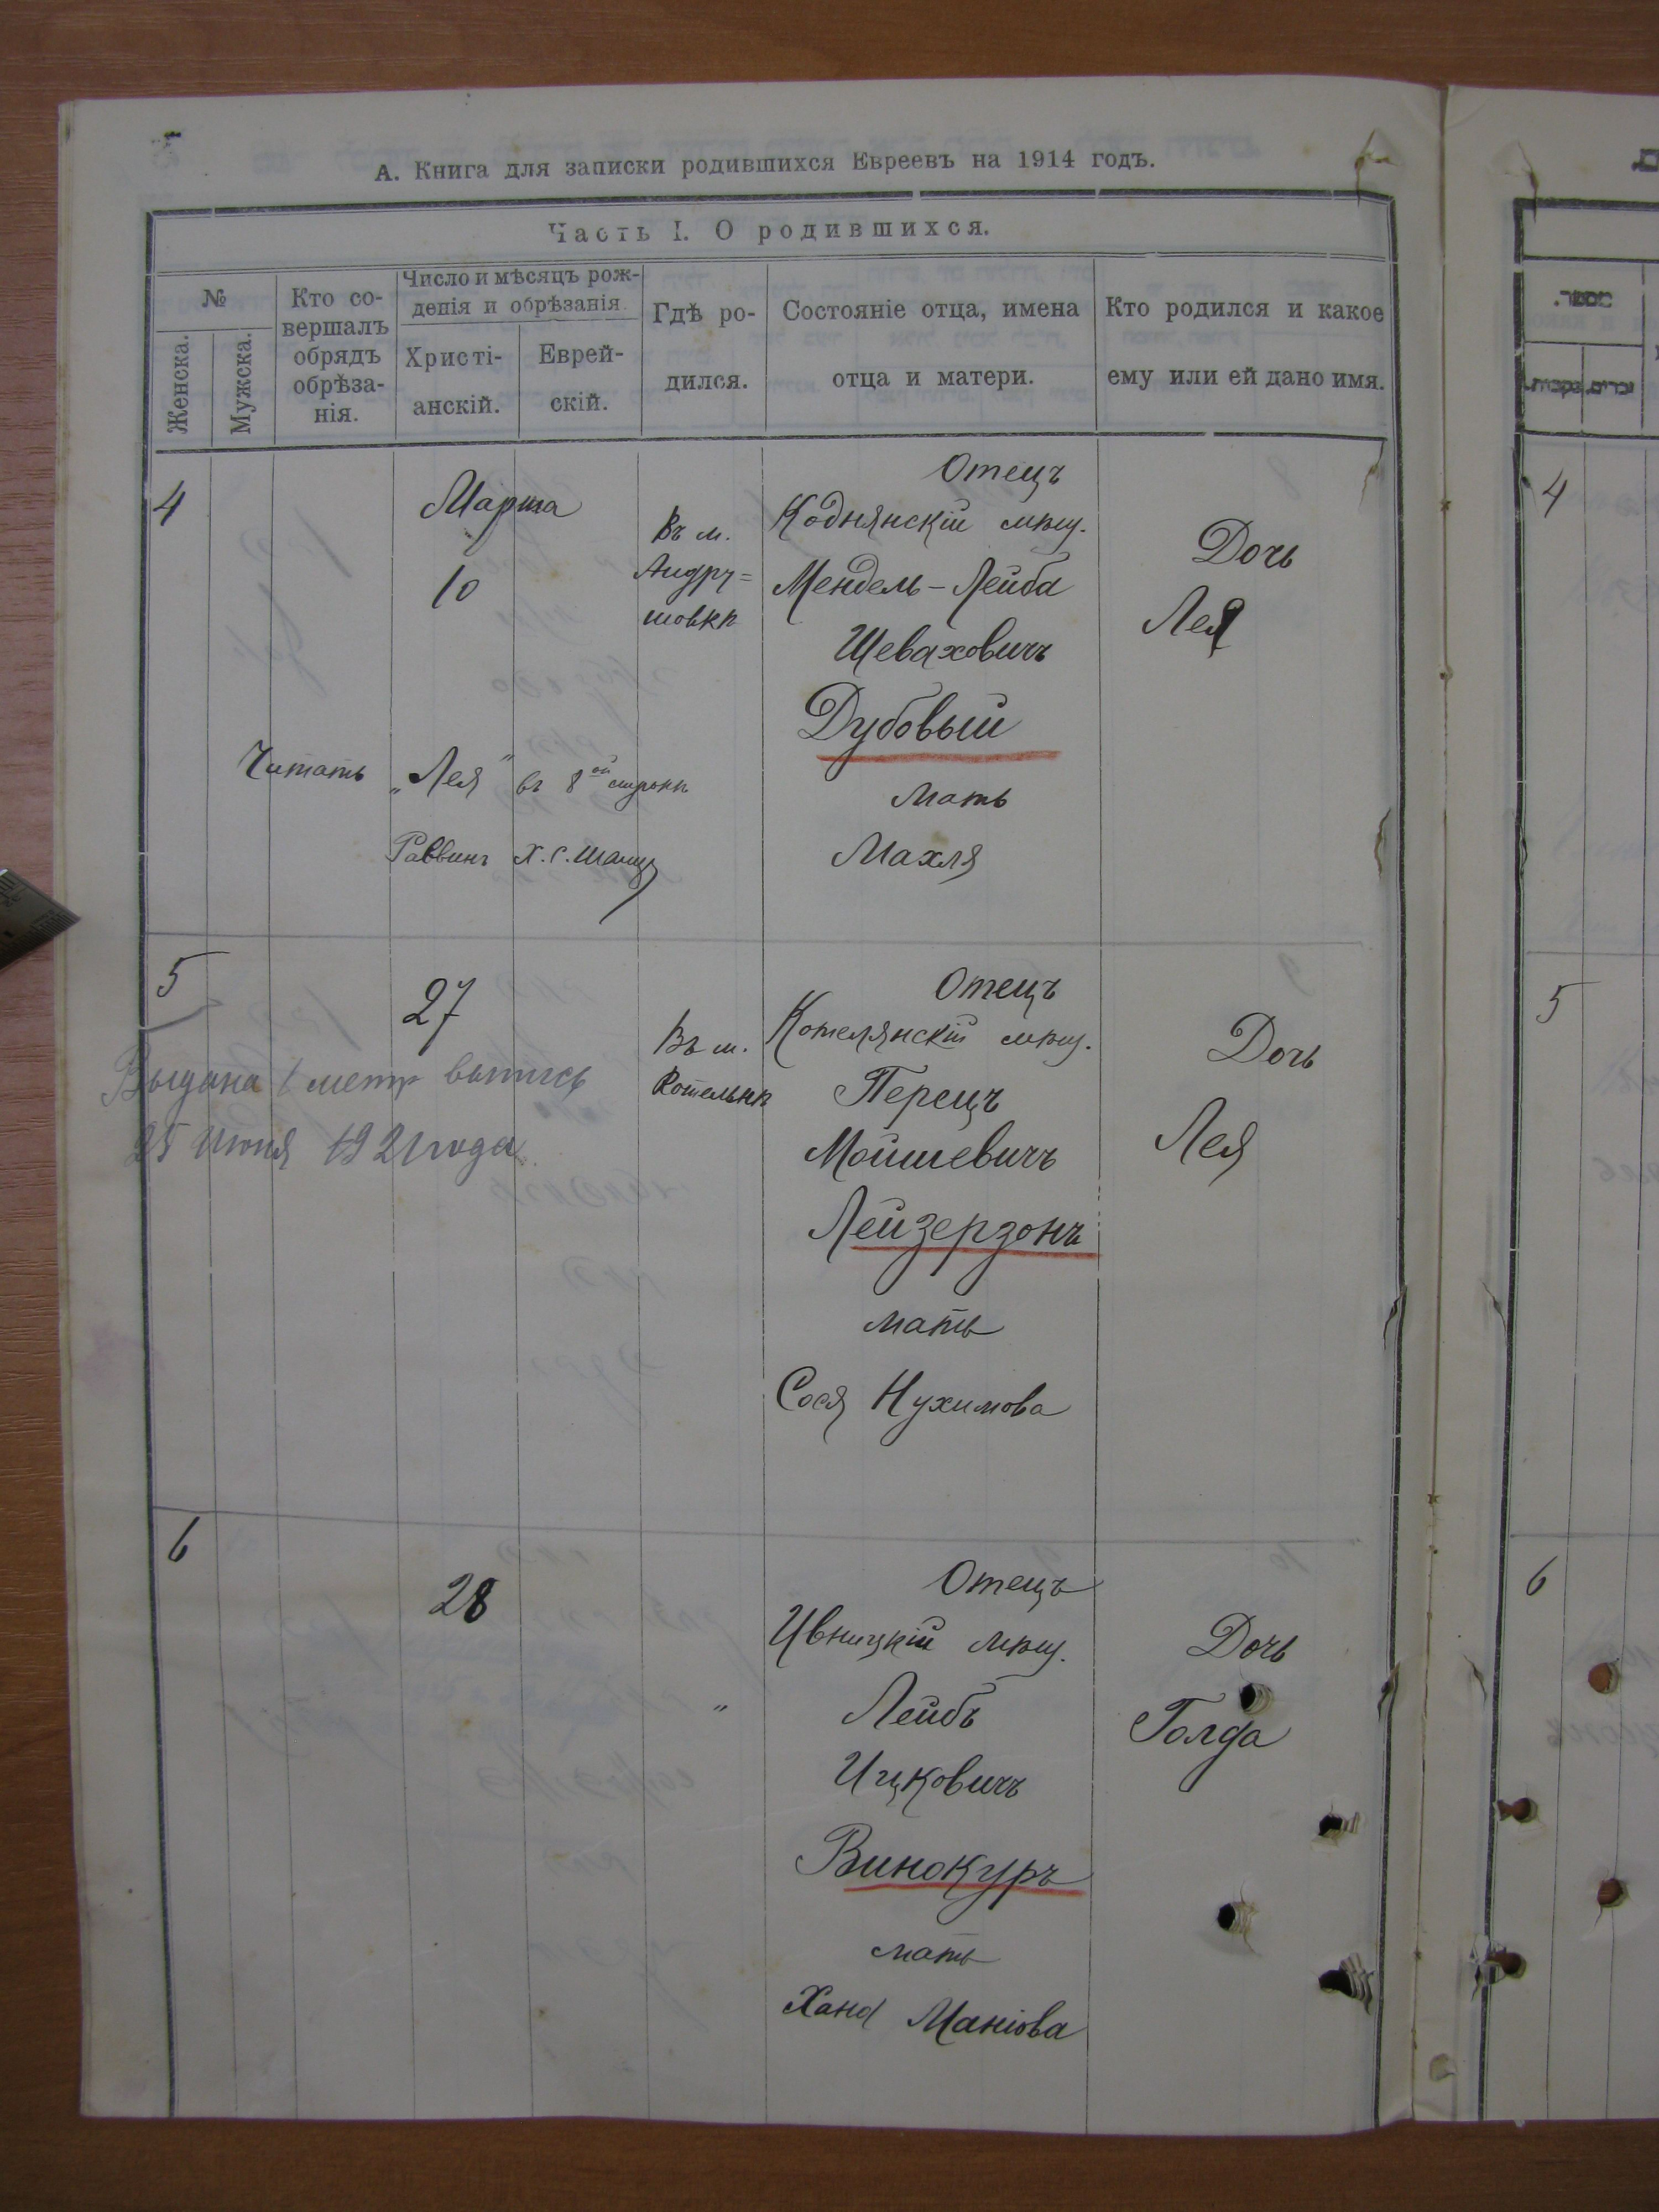 А. Книга для записки родившихся Евреевъ на 1914 годъ.
Часть I. О родившихся.
№
Женска.
Мужска.
Кто со-
вершалъ
обрядъ
обрѣза-
нія.
Число и мѣсяцъ рож-
денія и обрѣзанія.
Христі-
анскій.
Еврей-
скій.
Гдѣ ро-
дился.
Состояніе отца, имена
отца и матери.
Кто родился и какое
ему или ей дано имя.
4
Марта
10
Въ м.
Андру=
шовкѣ
Отецъ
Коднянскій мѣщ.
Мендель-Лейба
Шеваховичъ
Дубовый
Мать
Махля
Дочь
Лея
Читать „Лея" въ 8ой строкѣ
Раввинъ Х. С.
5
27
Въ м.
Котельнѣ
Отецъ
Котелянскій мѣщ.
Перецъ
Мойшевичъ
Лейзерзонъ
мать
Сося Нухимова
Дочь
Лея
Выдана 1 метр выпись
25 Июня 1921 года
6
28
"
Отецъ
Ивницкій мѣщ.
Лейбъ
Ицковичъ
Винокуръ
мать
Хана Маніова
Дочь
Голда
4
5
6